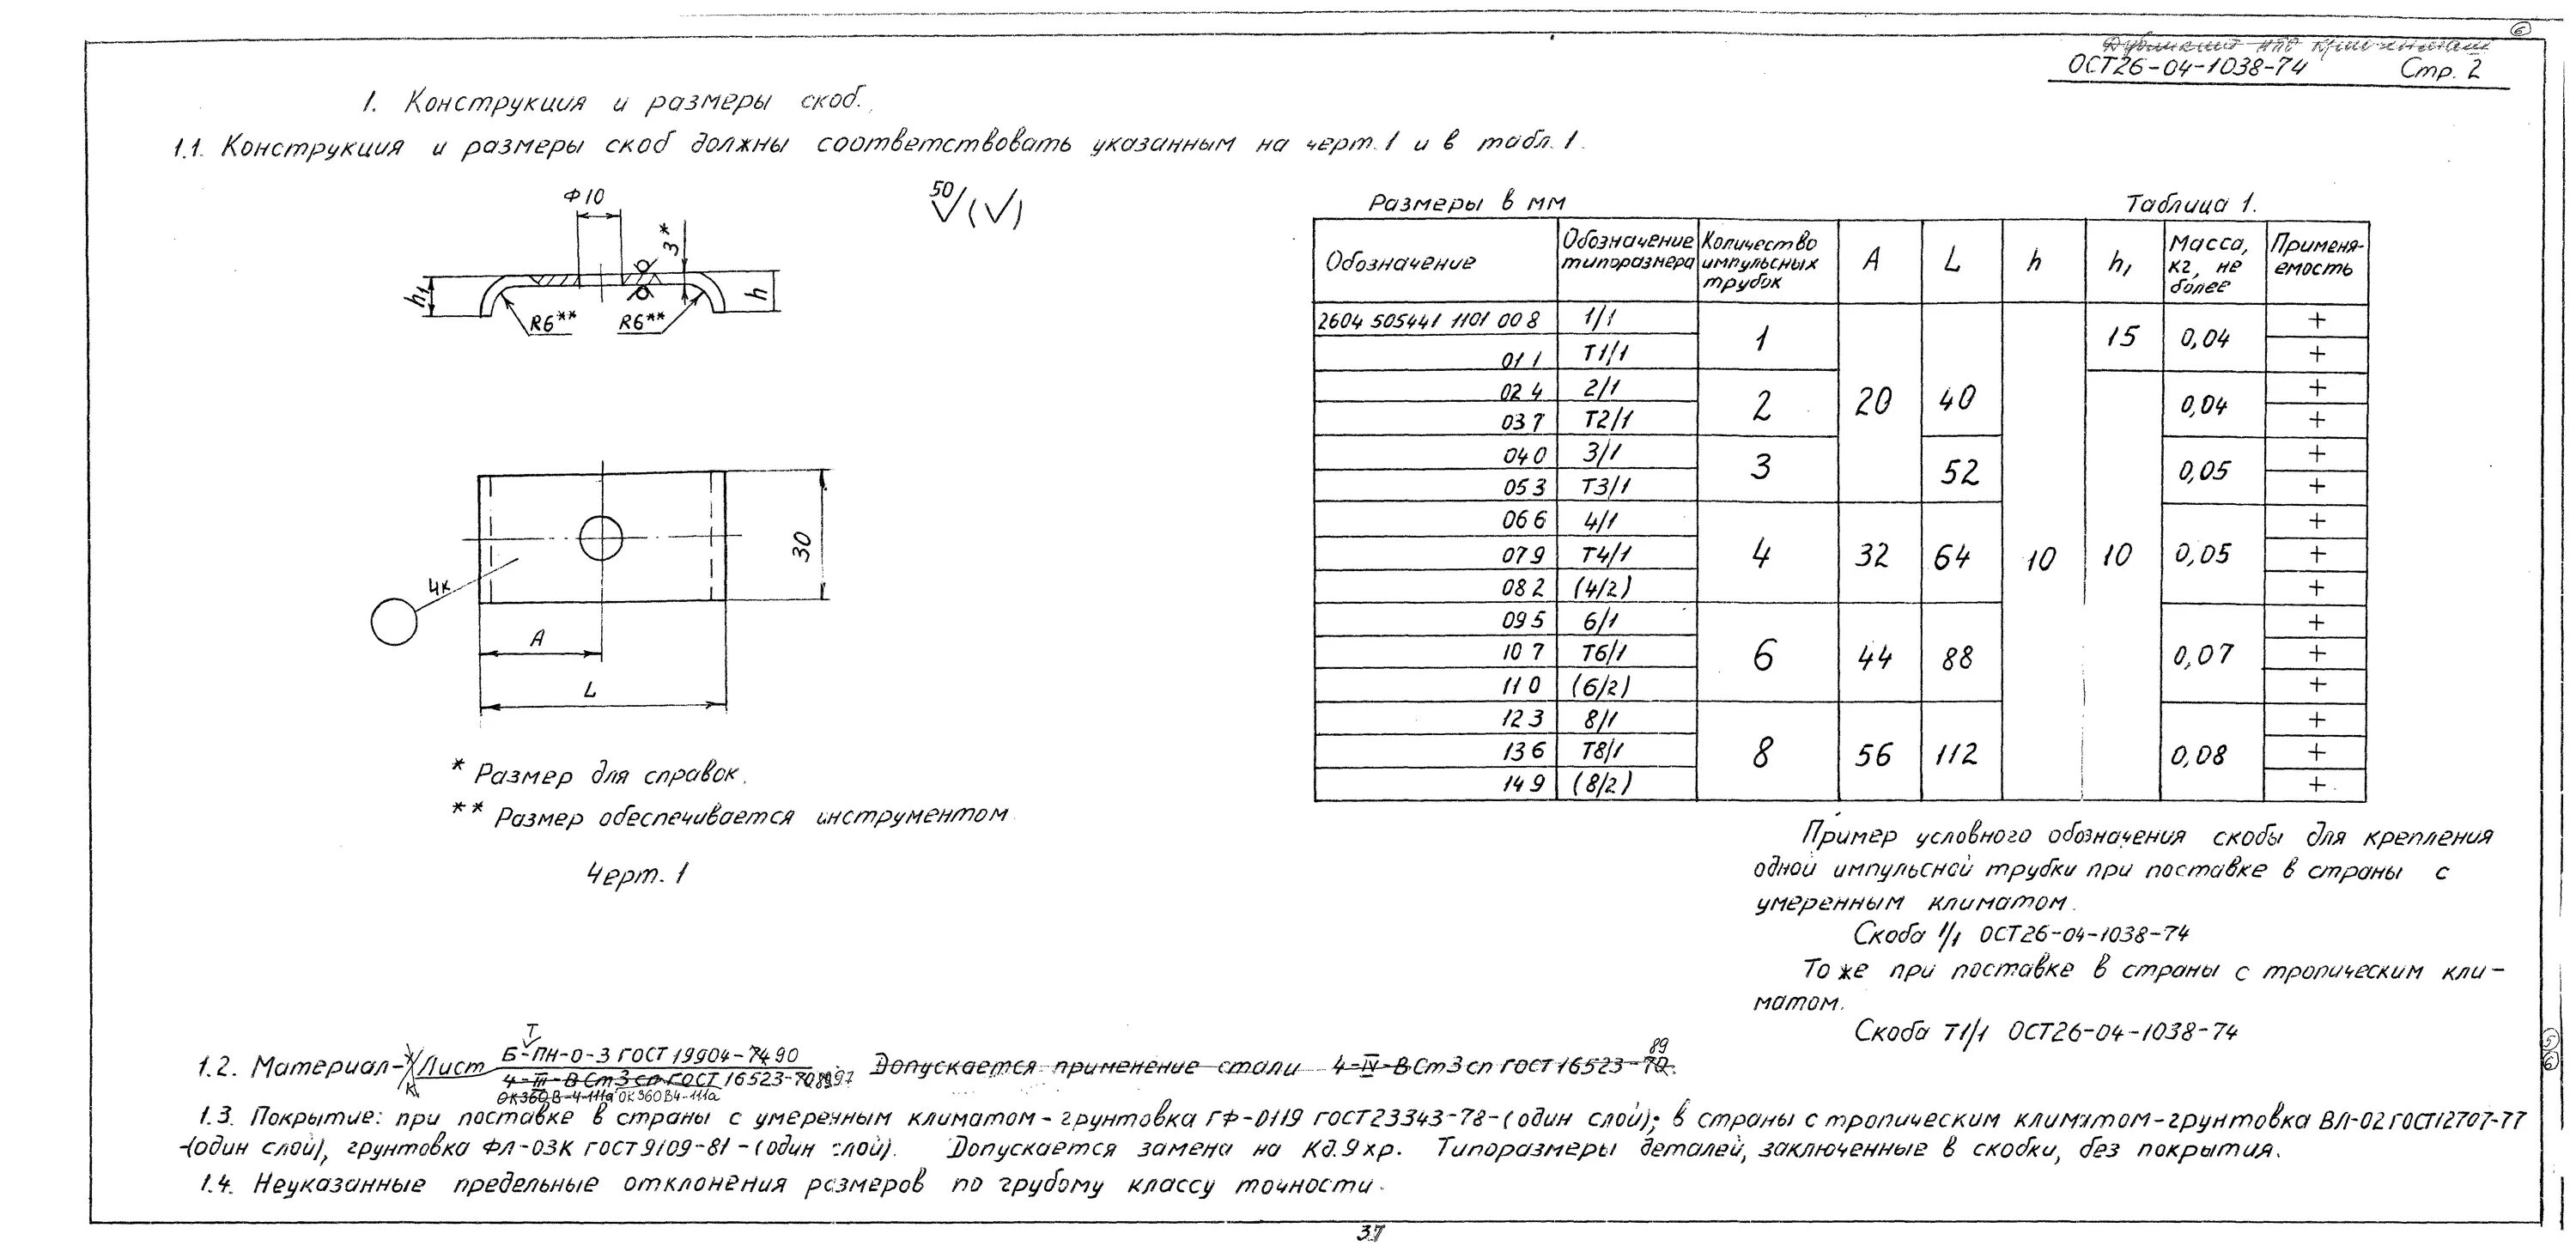 ОСТ26-04-1038-74 Стр. 2
1. Конструкция и размеры скоб.
1.1. Конструкция и размеры скоб должны соответствовать указанным на черт. 1 и в табл. 1.
Ф10
3*
h1
h
R6**
R6**
50
30
4к
А
L
* Размер для справок.
** Размер обеспечивается инструментом
Черт. 1
Размеры в мм Таблица 1.
Обозначение | Обозначение типоразмера | Количество импульсных трубок | А | L | h | h1 | Масса, кг, не более | Применя-емость
2604 505441 1101 00 8 | 1/1 | 1 | 20 | 40 | 10 | 15 | 0,04 | +
01 1 | Т1/1 | +
02 4 | 2/1 | 2 | 10 | 0,04 | +
03 7 | Т2/1 | +
04 0 | 3/1 | 3 | 52 | 0,05 | +
05 3 | Т3/1 | +
06 6 | 4/1 | 4 | 32 | 64 | 0,05 | +
07 9 | Т4/1 | +
08 2 | (4/2) | +
09 5 | 6/1 | 6 | 44 | 88 | 0,07 | +
10 7 | Т6/1 | +
11 0 | (6/2) | +
12 3 | 8/1 | 8 | 56 | 112 | 0,08 | +
13 6 | Т8/1 | +
14 9 | (8/2) | +
Пример условного обозначения скобы для крепления
одной импульсной трубки при поставке в страны с
умеренным климатом.
Скоба 1/1 ОСТ26-04-1038-74
То же при поставке в страны с тропическим кли-
матом.
Скоба Т1/1 ОСТ26-04-1038-74
Т
1.2. Материал- Лист Б-ПН-0-3 ГОСТ 19904-74 90
4-III-В Ст3сп ГОСТ 16523-70 89 97 Допускается применение стали 4-IV-ВСт3сп ГОСТ 16523-70. 89
ОК360В-4-IIIа ОК360В4-IIIа
1.3. Покрытие: при поставке в страны с умеренным климатом-грунтовка ГФ-0119 ГОСТ23343-78-(один слой); в страны с тропическим климатом-грунтовка ВЛ-02 ГОСТ12707-77
-(один слой), грунтовка ФЛ-03К ГОСТ9109-81-(один слой). Допускается замена на Кд.9хр. Типоразмеры деталей, заключенные в скобки, без покрытия.
1.4. Неуказанные предельные отклонения размеров по грубому классу точности.
37